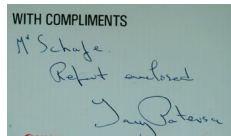 WITH COMPLIMENTS
Mr Schafe.
Report enclosed
Tony Paterson